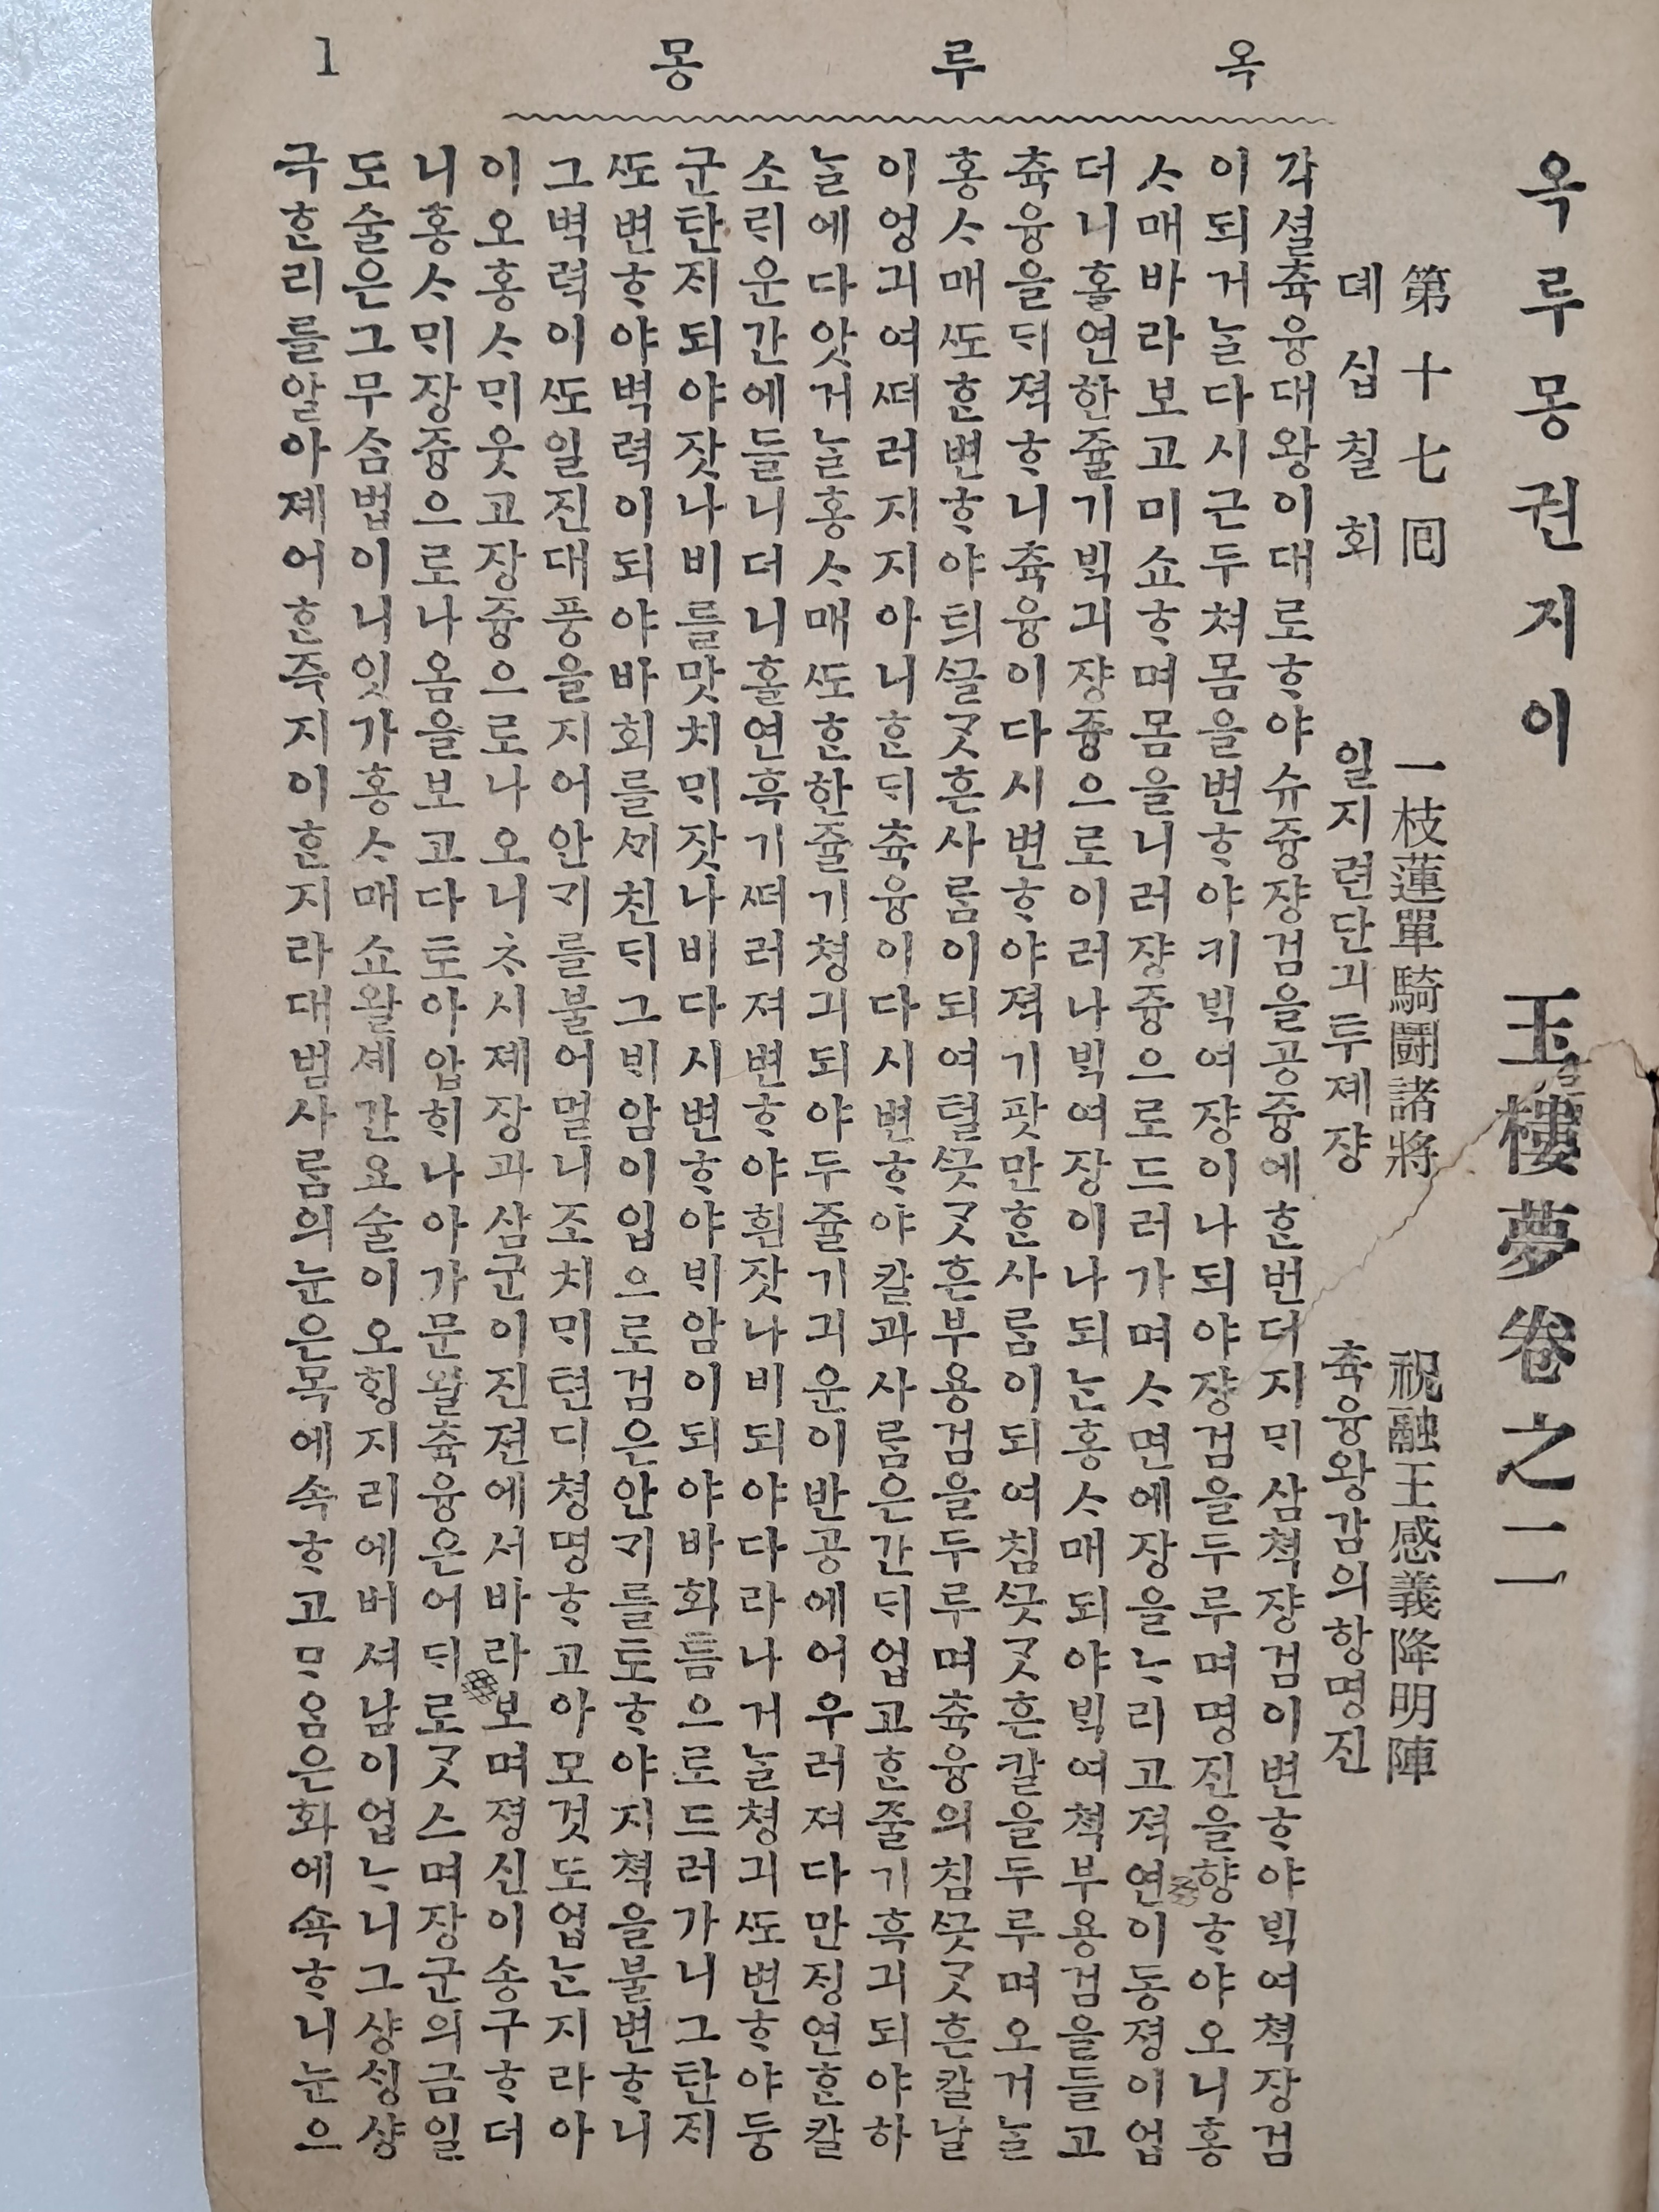 옥루몽 1
옥루몽권지이 玉樓夢卷之二
第十七回 一枝蓮單騎鬪諸將 祝融王感義降明陣
뎨십칠회 일지련단긔투졔쟝 츅융왕감의항명진
각셜츅융대왕이대로ᄒᆞ야슈즁쟝검을공즁에ᄒᆞᆫ번더지ᄆᆡ삼쳑쟝검이변ᄒᆞ야ᄇᆡᆨ여쳑장검
이되거ᄂᆞᆯ다시근두쳐몸을변ᄒᆞ야키ᄇᆡᆨ여쟝이나되야쟝검을두루며명진을향ᄒᆞ야오니홍
ᄉᆞ매바라보고미쇼ᄒᆞ며몸을니러쟝즁으로드러가며ᄉᆞ면에장을ᄂᆞ리고젹연이동졍이업
더니홀연한쥴기ᄇᆡᆨ긔쟝즁으로이러나ᄇᆡᆨ여장이나되ᄂᆞᆫ홍ᄉᆞ매되야ᄇᆡᆨ여쳑부용검을들고
츅융을ᄃᆡ젹ᄒᆞ니츅융이다시변ᄒᆞ야젹기팟만ᄒᆞᆫ사ᄅᆞᆷ이되여침ᄭᅳᆺᄀᆞᆺ흔칼을두루며오거ᄂᆞᆯ
홍ᄉᆞ매ᄯᅩᄒᆞᆫ변ᄒᆞ야틔ᄭᅳᆯᄀᆞᆺ흔사ᄅᆞᆷ이되여털ᄭᅳᆺᄀᆞᆺ흔부용검을두루며츅융의침ᄭᅳᆺᄀᆞᆺ흔칼날
이엉긔여ᄯᅥ러지지아니ᄒᆞᆫᄃᆡ츅융이다시변ᄒᆞ야칼과사ᄅᆞᆷ은간ᄃᆡ업고ᄒᆞᆫ줄기흑긔되야하
ᄂᆞᆯ에다앗거ᄂᆞᆯ홍ᄉᆞ매ᄯᅩᄒᆞᆫ한쥴기쳥긔되야두쥴기긔운이반공에어우러져다만징연ᄒᆞᆫ칼
소ᄅᆡ운간에들니더니홀연흑기ᄯᅥ러져변ᄒᆞ야흰잣나비되야다라나거ᄂᆞᆯ쳥긔ᄯᅩ변ᄒᆞ야둥
군탄ᄌᆡ되야잣나비를맛치ᄆᆡ잣나비다시변ᄒᆞ야ᄇᆡ암이되야바회틈으로드러가니그탄ᄌᆡ
ᄯᅩ변ᄒᆞ야벽력이되야바회를ᄭᆡ친ᄃᆡ그ᄇᆡ암이입으로검은안ᄀᆡ를토ᄒᆞ야지쳑을불변ᄒᆞ니
그벽력이ᄯᅩ일진대풍을지어안ᄀᆡ를불어멀니조치ᄆᆡ텬디쳥명ᄒᆞ고아모것도업ᄂᆞᆫ지라아
이오홍ᄉᆞᄆᆡ웃고장즁으로나오니ᄎᆞ시졔장과삼군이진젼에서바라보며졍신이송구ᄒᆞ더
니홍ᄉᆞᄆᆡ장즁으로나옴을보고다토아압히나아가문왈츅융은어ᄃᆡ로ᄀᆞᆺ스며장군의금일
도술은그무ᄉᆞᆷ법이니잇가홍ᄉᆞ매쇼왈셰간요술이오ᄒᆡᆼ지리에버셔남이업ᄂᆞ니그샹ᄉᆡᆼ샹
극ᄒᆞᆫ리를알아졔어ᄒᆞᆫ즉지이ᄒᆞᆫ지라대범사ᄅᆞᆷ의눈은목에속ᄒᆞ고ᄆᆞ음은화에쇽ᄒᆞ니눈으